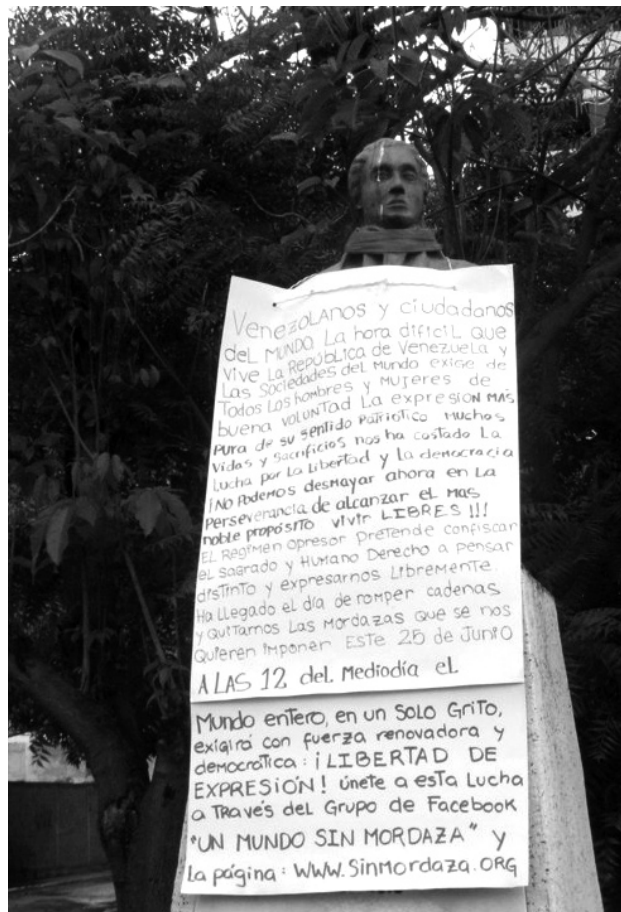 Venezolanos y ciudadanos
del Mundo. La hora dificil que
vive La República de Venezuela y
Las Sociedades del Mundo exige de
Todos Los hombres y Mujeres de
buena voluntad La expresión más
pura de su sentido Patriótico Muchos
Vidas y Sacrificios nos ha costado La
Lucha por La Libertad y La democracia
¡No Podemos desmayar ahora en La
Perseverancia de alcanzar el mas
noble propósito vivir LIBRES!!!
El Regimen opresor pretende confiscar
el sagrado y Humano Derecho a pensar
distinto y expresarnos Libremente.
Ha llegado el día de romper cadenas
y quitarnos Las Mordazas que se nos
Quieren imponer Este 25 de Junio
A LAS 12 del Mediodía el
Mundo entero, en un SOLO Grito,
exigirá con fuerza renovadora y
democrática: ¡LIBERTAD DE
EXPRESIÓN! únete a esta Lucha
a Través del Grupo de Facebook
"UN MUNDO SIN MORDAZA" y
La página: WWW.SinMordaza.ORG